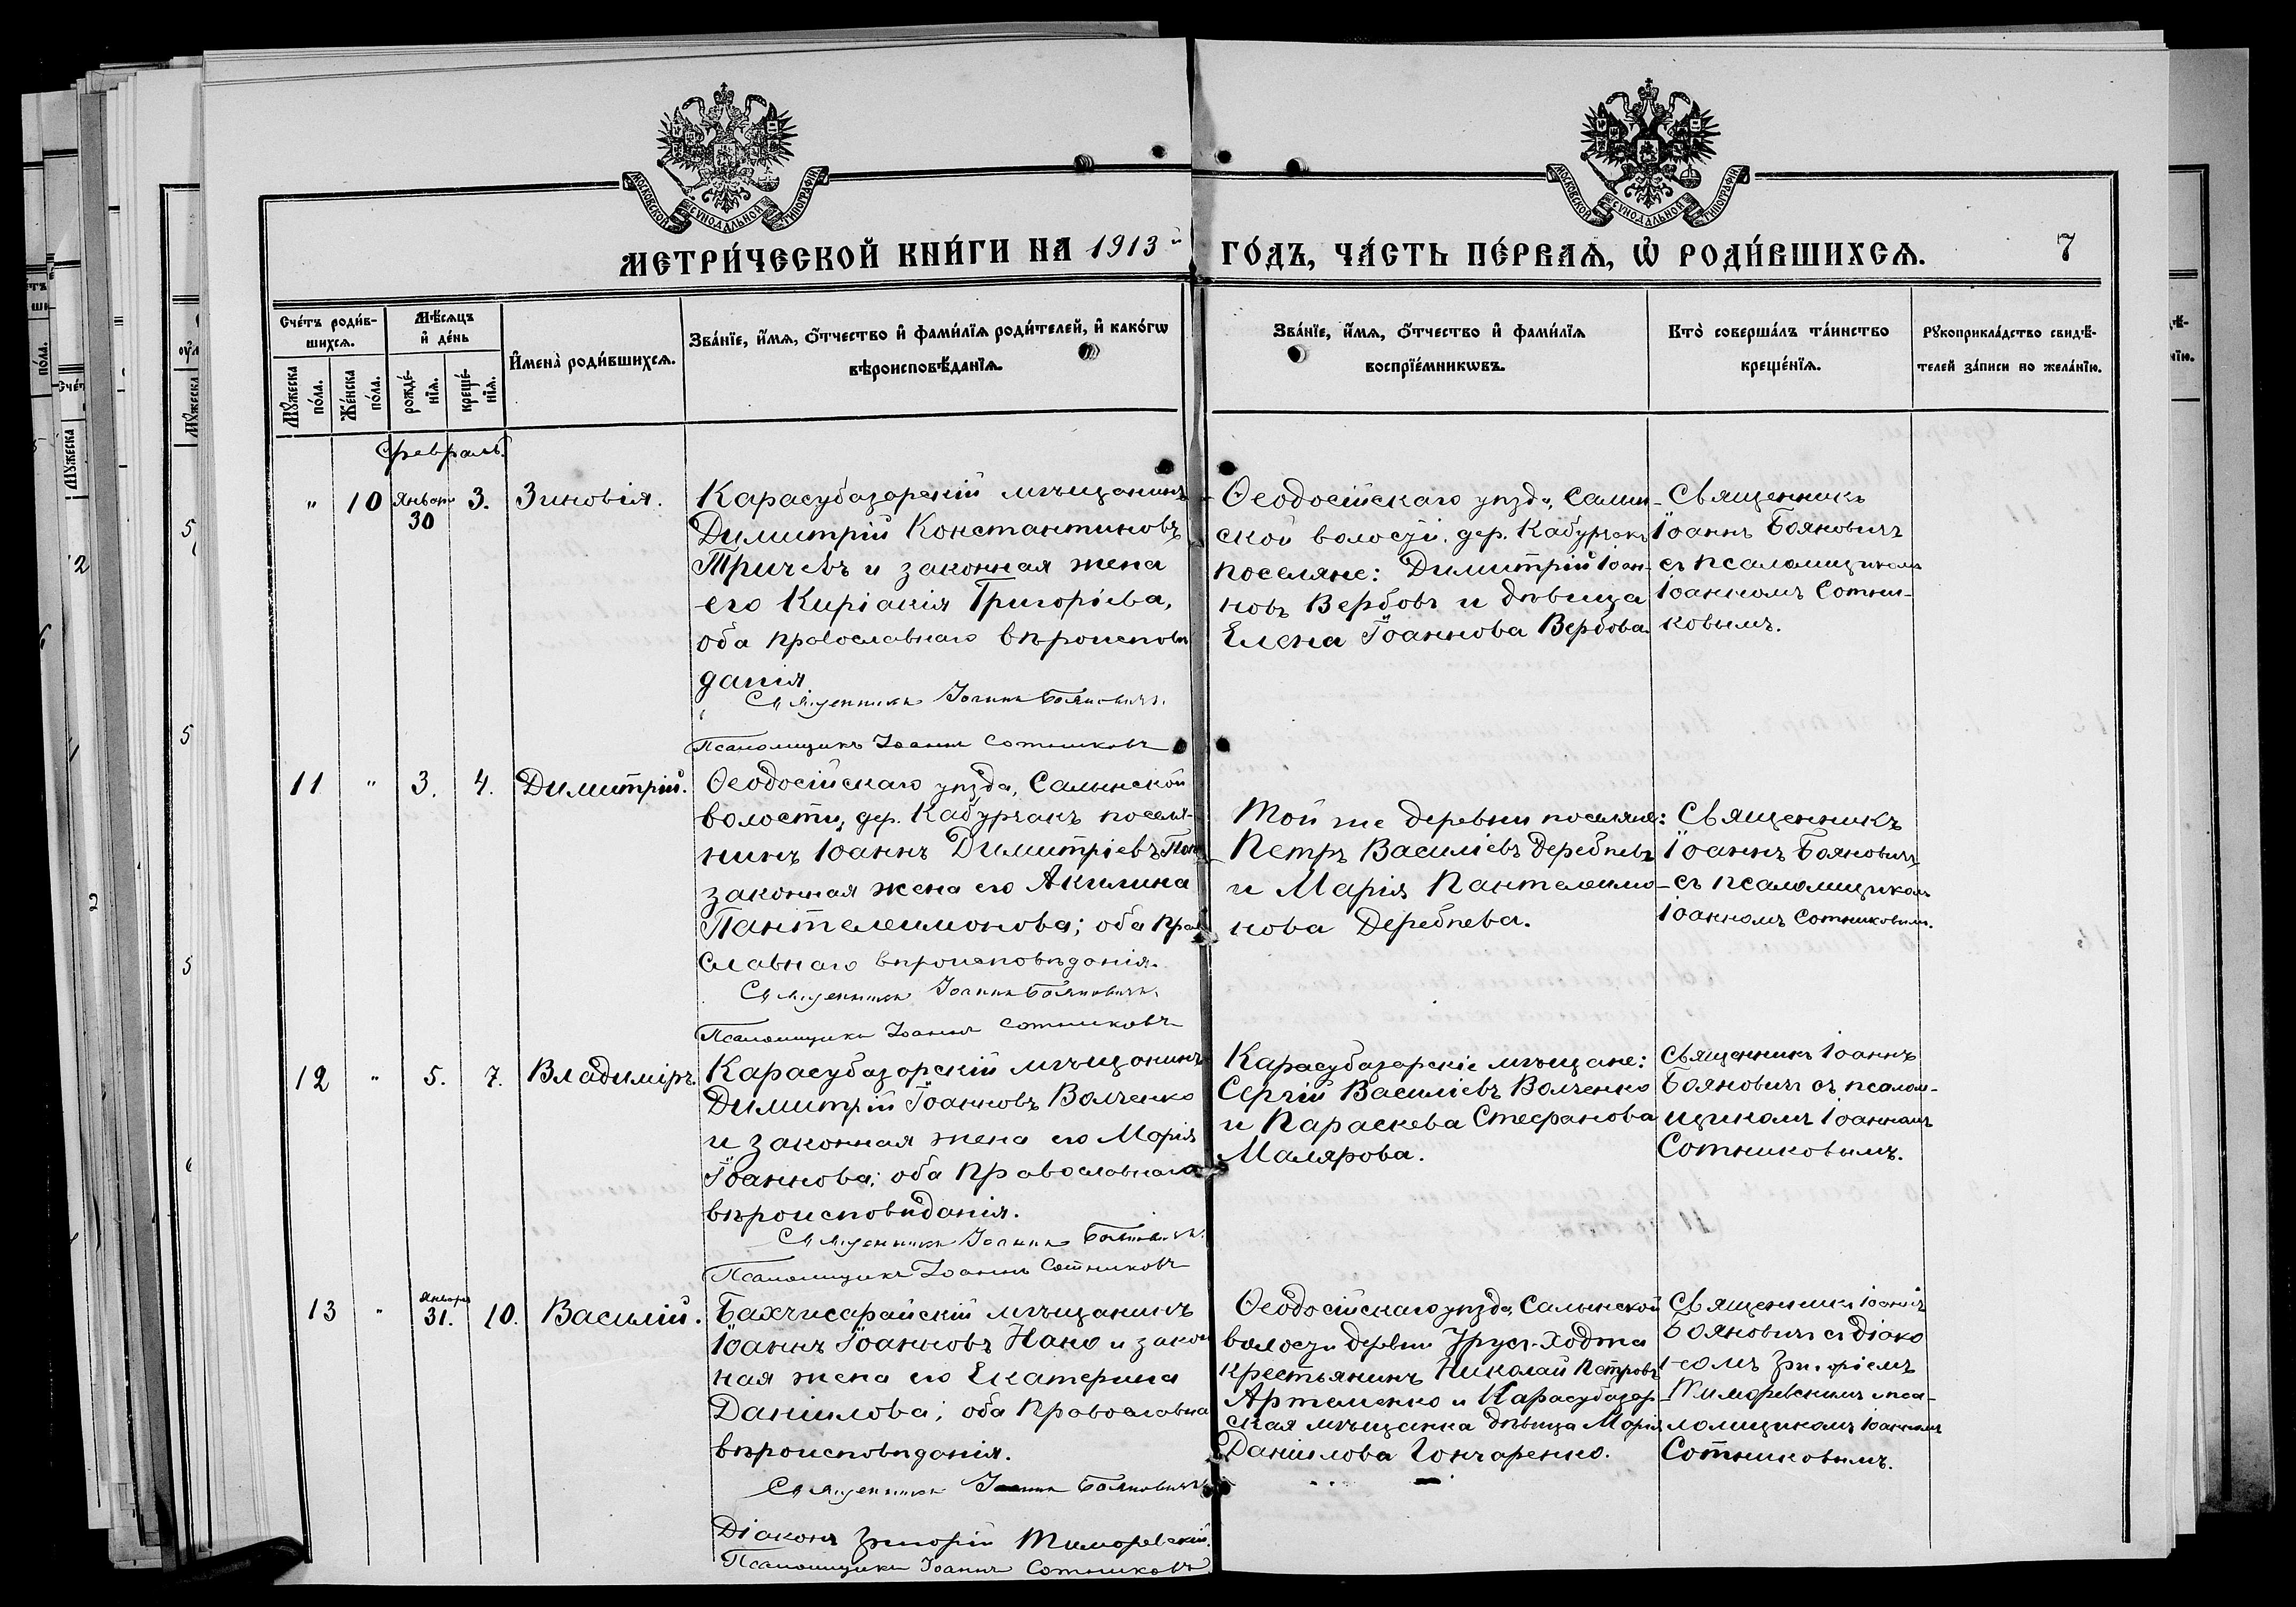 МОСКОВСКОЙ СѴНОДАЛЬНОЙ ТИПОГРАФІИ
МОСКОВСКОЙ СѴНОДАЛЬНОЙ ТИПОГРАФІИ
МЕТРИ́ЧЕСКОЙ КНИ́ГИ НА 1913й
ГО́ДЪ, ЧА́СТЬ ПЕ́РВАѦ, Ѡ҆ РОДИ́ВШИХСѦ.
7
Сче́тъ роди́в-
шихсѧ.
Мꙋ́жеска
по́ла.
Же́нска
по́ла.
Мѣ́сѧцъ
и҆ де́нь
рожде́-
нїѧ.
креще́-
нїѧ.
И҆мена̀ роди́вшихсѧ.
Зва́нїе, и҆́мѧ, ѻ҆́тчество и҆ фами́лїѧ роди́телей, и҆ како́гѡ
вѣроисповѣ́данїѧ.
Зва́нїе, и҆́мѧ, ѻ҆́тчество и҆ фами́лїѧ
воспрїе́мникѡвъ.
Кто̀ соверша́лъ та́инство
креще́нїѧ.
Рꙋкоприкла́дство свидѣ́-
телей за́писи по жела́нїю.
Февраль.
" 10 Января 30 3. Зиновія.
Карасубазарскій мѣщанинъ
Димитрій Константиновъ
Тричевъ и законная жена
его Киріакія Григоріева,
оба православнаго вѣроисповѣ
данія.
Священникъ Іоаннъ Бояновичъ.
Псаломщикъ Іоаннъ Сотниковъ
Ѳеодосійскаго уѣзда, Салын-
ской волости, дер. Кабурчакъ
поселяне: Димитрій Іоан-
новъ Вербовъ и дѣвица
Елена Іоаннова Вербова.
Священникъ
Іоаннъ Бояновичъ
съ псаломщикомъ
Іоанномъ Сотни-
ковымъ.
11 " 3. 4. Димитрій.
Ѳеодосійскаго уѣзда, Салынской
волости, дер. Кабурчакъ поселя-
нинъ Іоаннъ Димитріевъ
законная жена его Акилина
Пантелеимонова; оба Право
славнаго вѣроисповѣданія.
Священникъ Іоаннъ Бояновичъ.
Псаломщикъ Іоаннъ Сотниковъ
Той же деревни поселяне:
Петръ Василіевъ Деребчевъ
и Марія Пантелеимо-
нова Деребчева.
Священникъ
Іоаннъ Бояновичъ
съ псаломщикомъ
Іоанномъ Сотниковымъ.
12 " 5. 7. Владиміръ.
Карасубазарскій мѣщанинъ
Димитрій Іоанновъ Волченко
и законная жена его Марія
Іоаннова; оба Православнаго
вѣроисповѣданія.
Священникъ Іоаннъ Бояновичъ.
Псаломщикъ Іоаннъ Сотниковъ
Карасубазарскіе мѣщане:
Сергій Василіевъ Волченко
и Параскева Стефанова
Малярова.
Священникъ Іоаннъ
Бояновичъ съ псалом-
щикомъ Іоанномъ
Сотниковымъ.
13 " Января 31. 10. Василій.
Бахчисарайскій мѣщанинъ
Іоаннъ Іоанновъ Нано и закон
ная жена его Екатерина
Даніилова; оба Православна
вѣроисповѣданія.
Священникъ Іоаннъ Бояновичъ
Діаконъ Григорій Тиморевскій.
Псаломщикъ Іоаннъ Сотниковъ
Ѳеодосійскаго уѣзда, Салынской
волости деревни Урусъ-Ходжа
крестьянинъ Николай Петровъ
Артеменко и Карасубазар-
ская мѣщанка дѣвица Марія
Даніилова Гончаренко.
Священникъ Іоаннъ
Бояновичъ съ діако
номъ Григоріемъ
Тиморевскимъ и пса-
ломщикомъ Іоанномъ
Сотниковымъ.